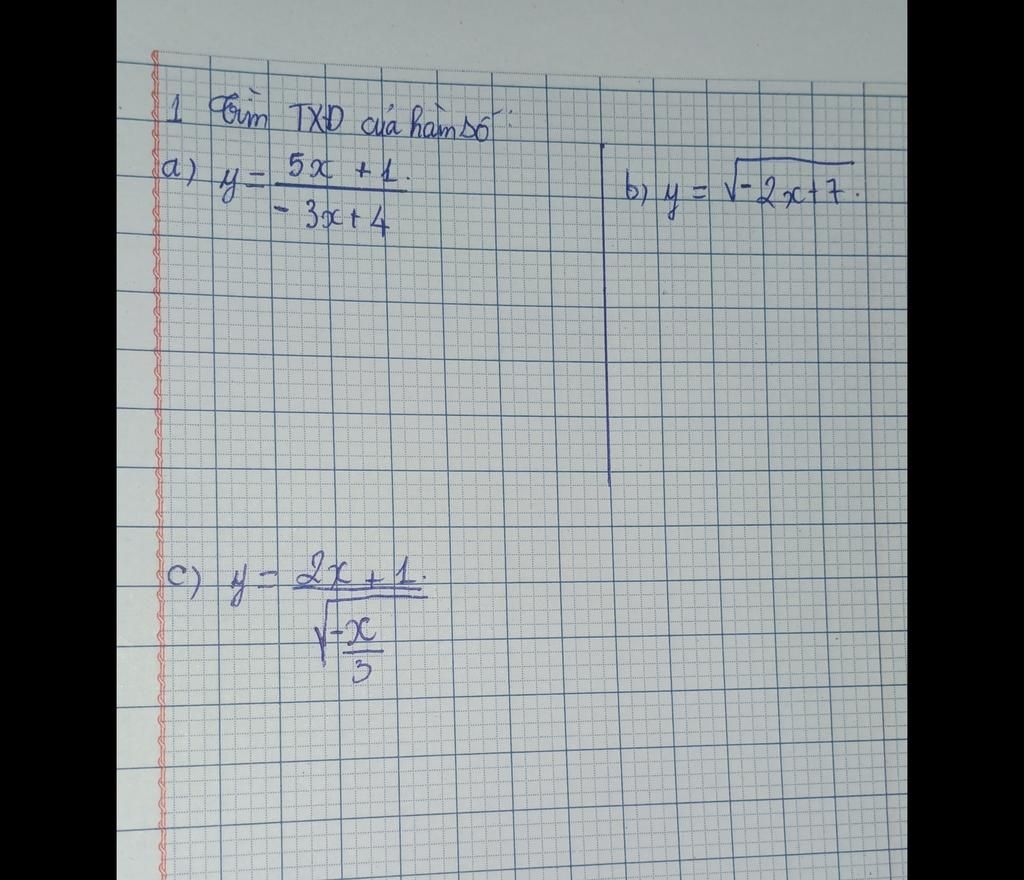 1 Tìm TXD của hàm số:
a) y = \frac{5x + 1.}{-3x + 4}
b) y = \sqrt{-2x + 7}.
c) y = \frac{2x + 1.}{\sqrt{-\frac{x}{3}}}